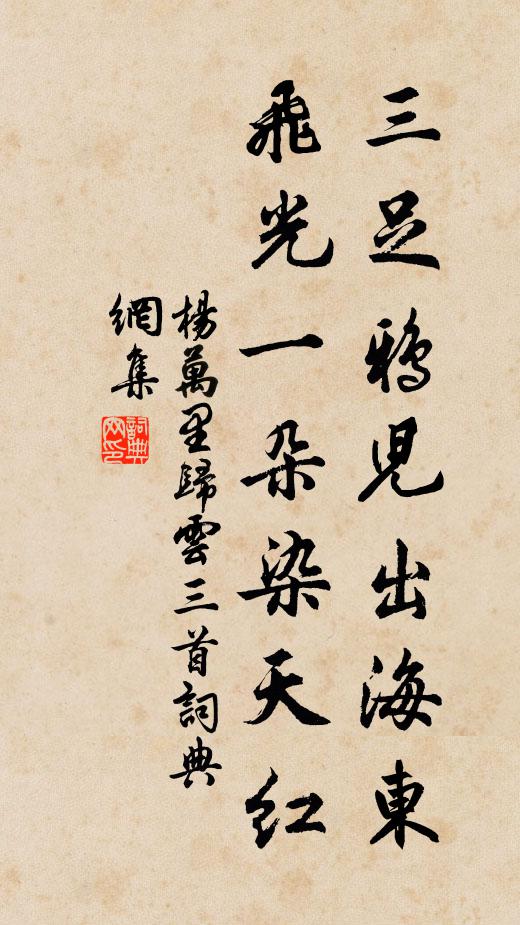 三足鴉兒出海東
飛光一朵染天紅
楊萬里歸雲三首詞典
網集
詞典网印